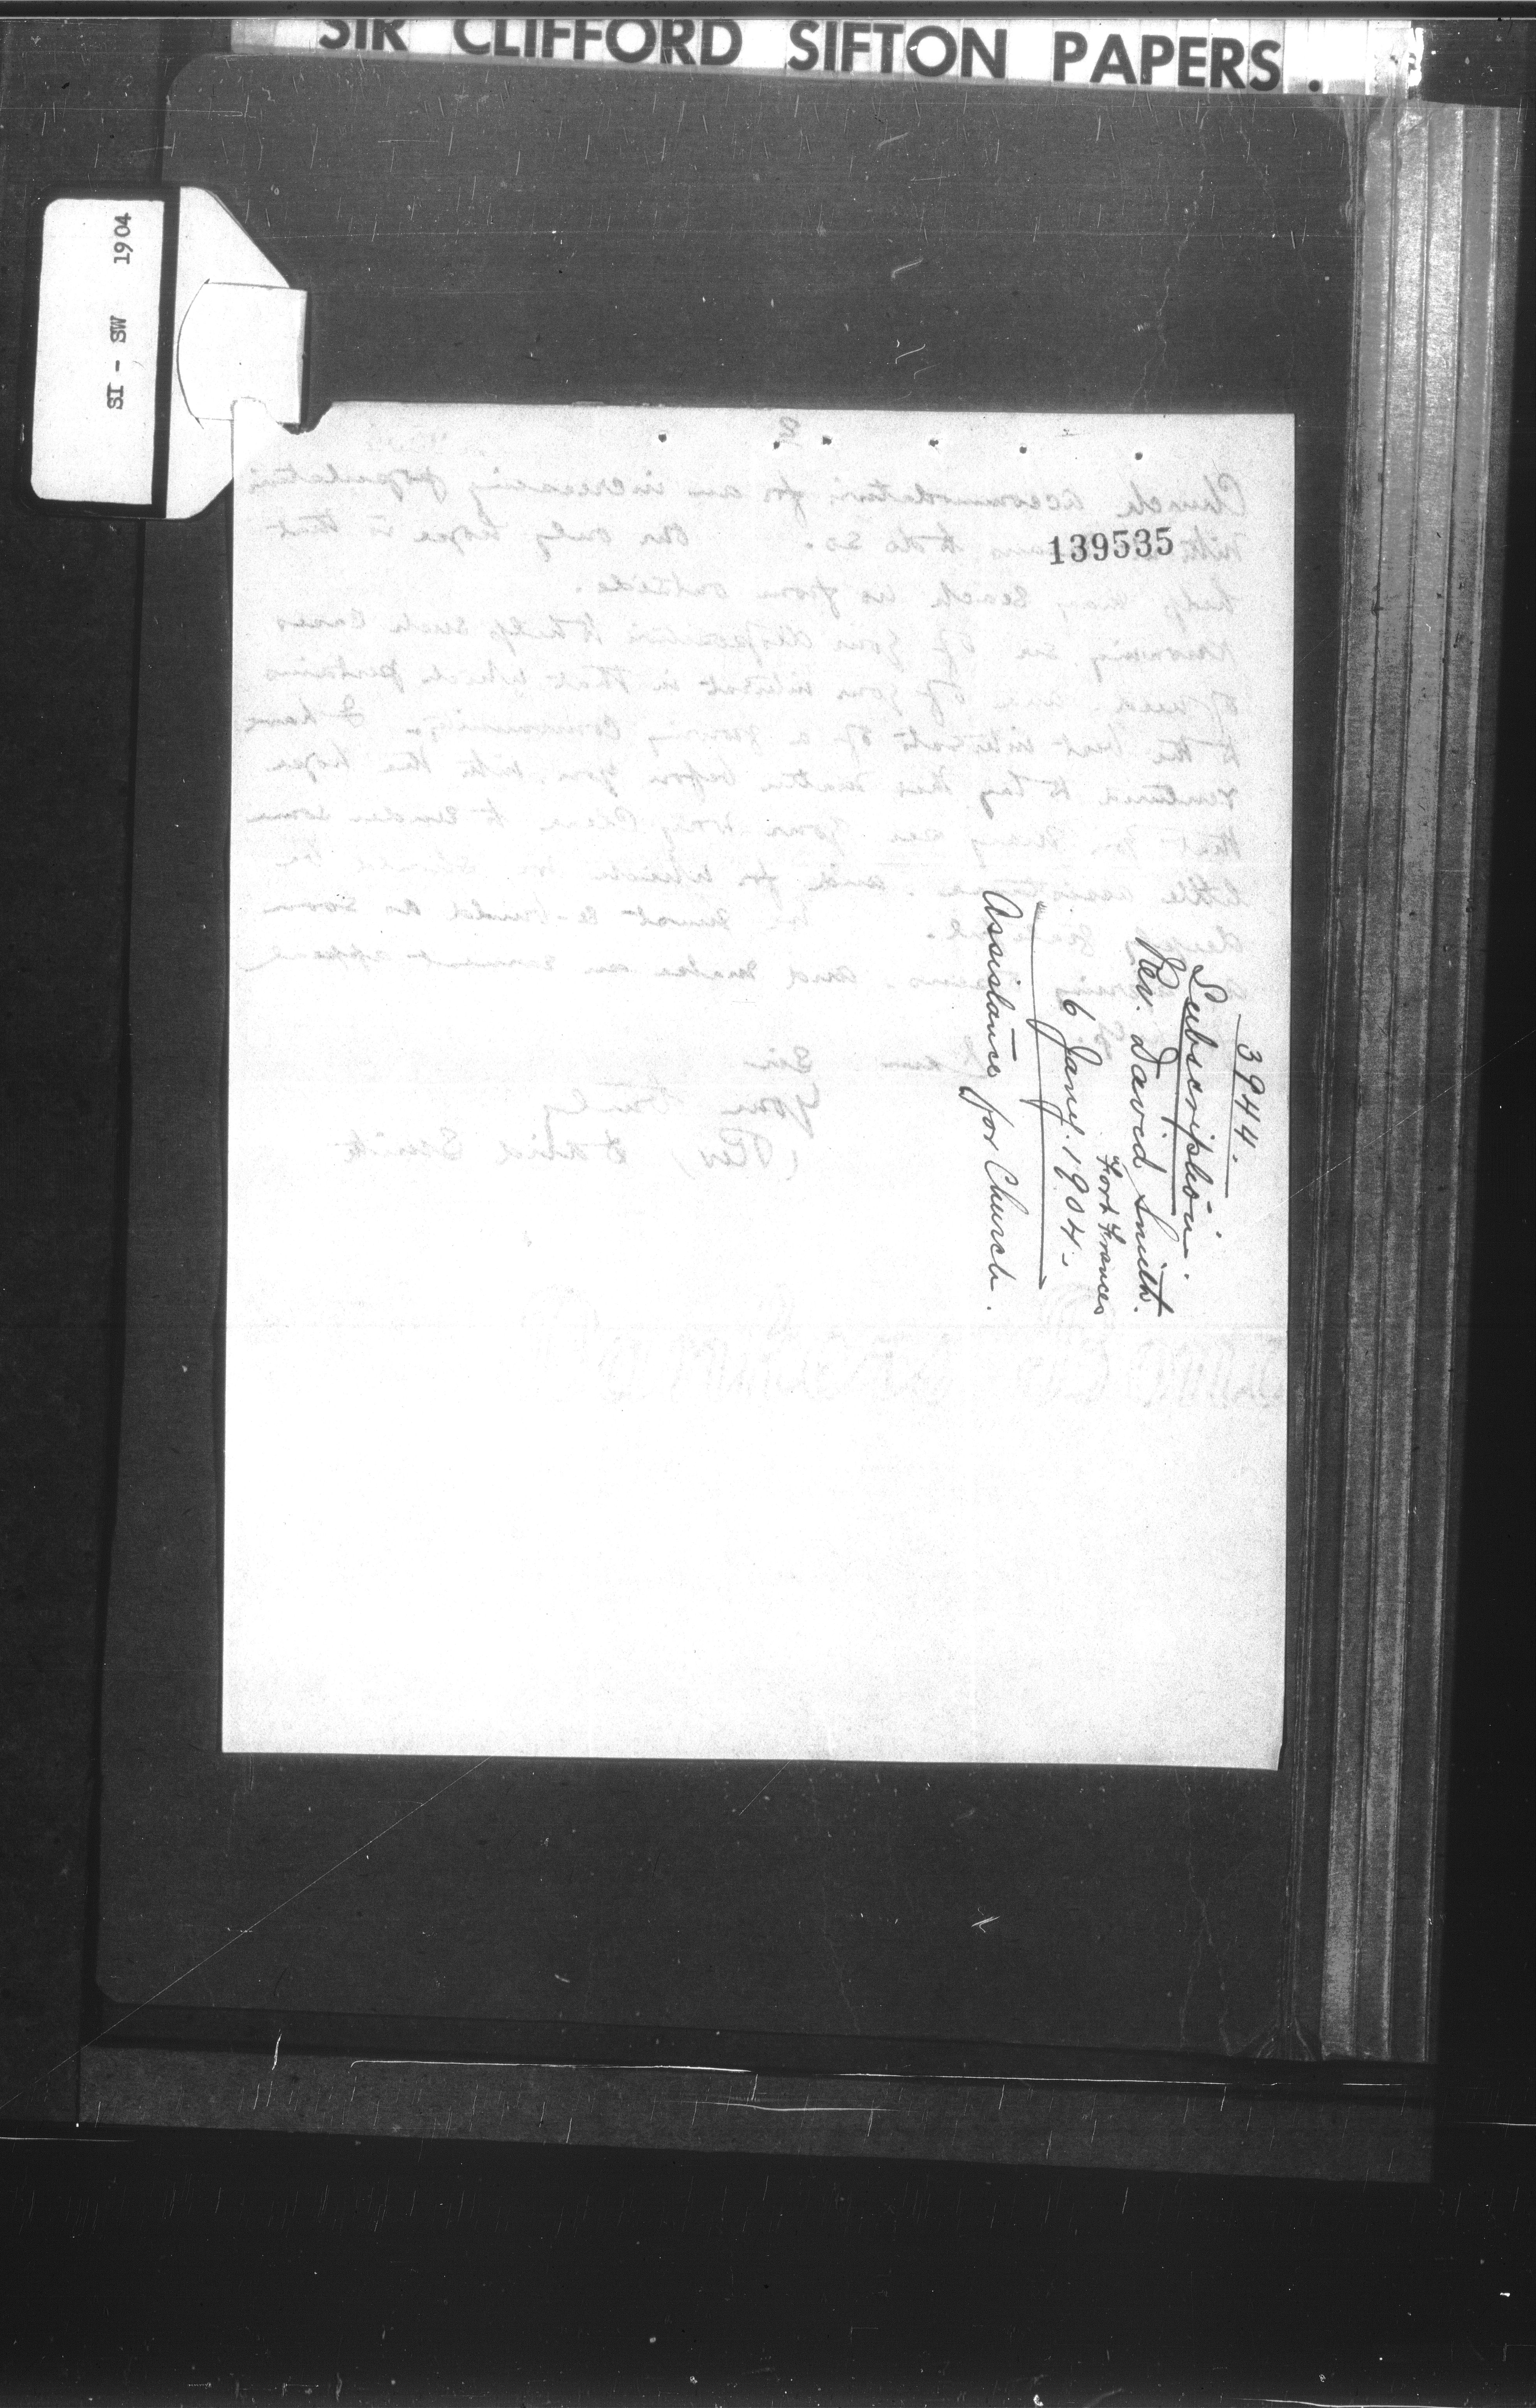 SIR CLIFFORD SIFTON PAPERS.
SI - SW 1904
139535
3944.
Subscription.
Rev. David Smith.
Fort Frances
6 Jany. 1904.
Assistance for Church.
2
Church accommodation for an increasing population
to do so. Our only hope is that
help may reach us from outside.
Knowing sir of your disposition to help such cases
of need, and of your interest in that which pertains
to the best interests of a growing community. I have
ventured to lay this matter before you with the hope
that you may see your way clear to render some
little assistance and for which we should be
deeply grateful. We must re-build as soon
and make an earnest appeal
Sir
Yours truly
(Rev) David Smith